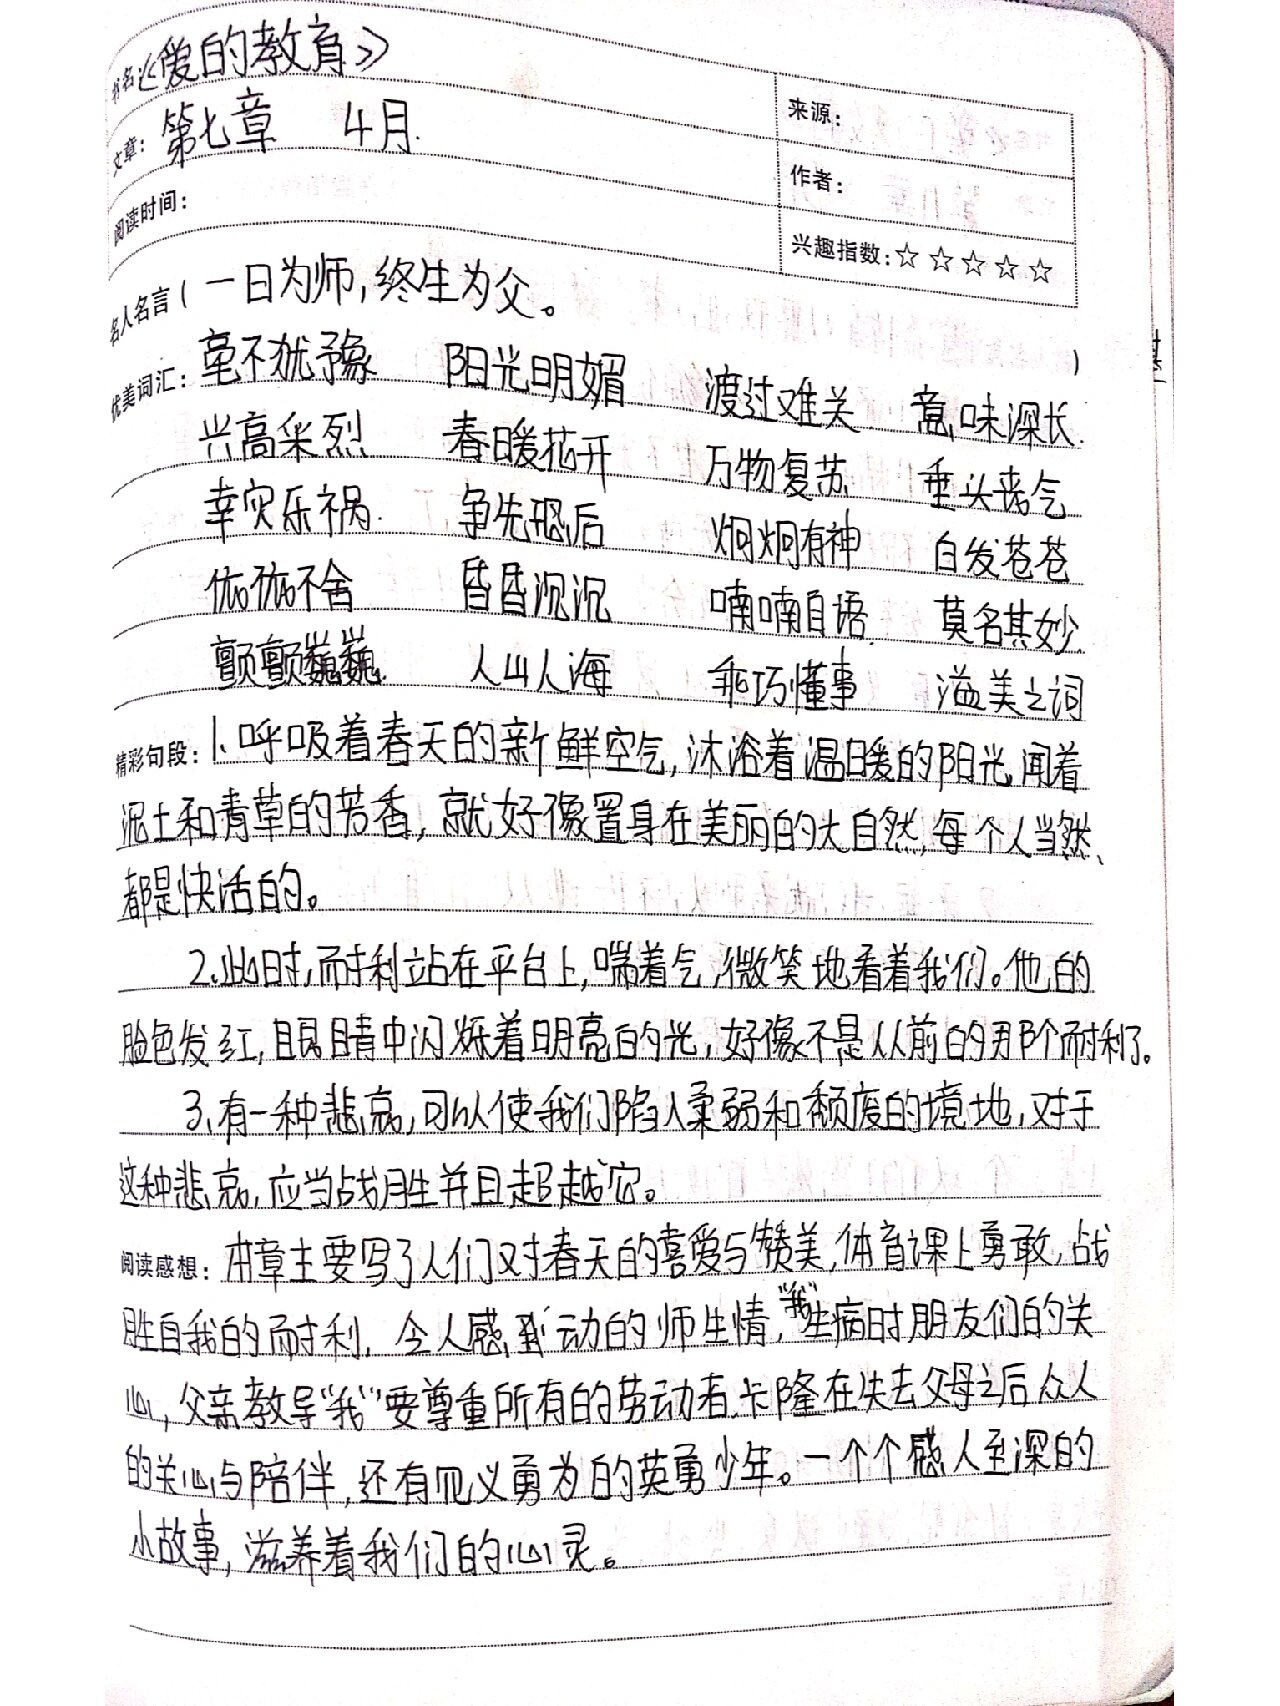 书名《爱的教育》
文章：第七章 4月.
来源：
阅读时间：
作者：
兴趣指数：☆☆☆☆☆
名人名言（一日为师，终生为父。）
优美词汇：毫不犹豫 阳光明媚 渡过难关 意味深长.
兴高采烈 春暖花开 万物复苏 垂头丧气
幸灾乐祸. 争先恐后 炯炯有神 白发苍苍
依依不舍 昏昏沉沉 喃喃自语. 莫名其妙.
颤颤巍巍. 人山人海 乖巧懂事 溢美之词
精彩句段：1、呼吸着春天的新鲜空气，沐浴着温暖的阳光，闻着
泥土和青草的芳香，就好像置身在美丽的大自然，每个人当然、
都是快活的。
2.此时，耐利站在平台上，喘着气，微笑地看着我们。他的
脸色发红，眼睛中闪烁着明亮的光，好像不是从前的那个耐利了。
3、有一种悲哀，可以使我们陷入柔弱和颓废的境地，对于
这种悲哀，应当战胜并且超越它。
阅读感想：本章主要写了人们对春天的喜爱与赞美，体育课上勇敢，战
胜自我的耐利，令人感动的师生情，“我”生病时朋友们的关
心，父亲教导“我”要尊重所有的劳动者，卡隆在失去父母之后众人
的关心与陪伴，还有见义勇为的英勇少年。一个个感人至深的
小故事，滋养着我们的心灵。